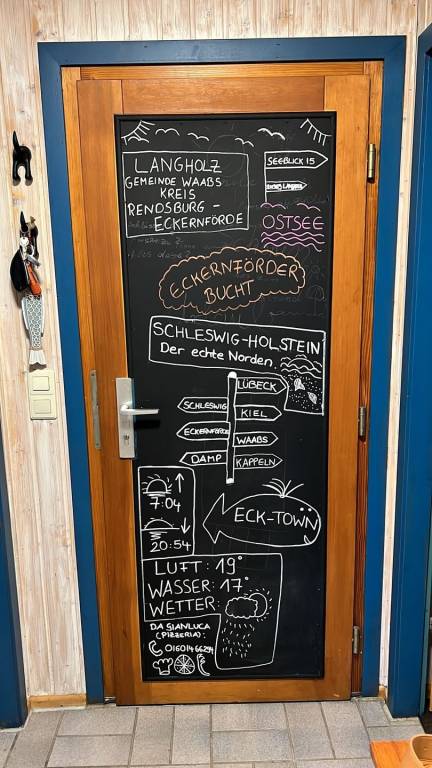 LANGHOLZ
GEMEINDE WAABS
KREIS
RENDSBURG -
ECKERNFÖRDE
SEEBLICK 15
OSTSEE
ECKERNFÖRDER
BUCHT
SCHLESWIG-HOLSTEIN
Der echte Norden.
LÜBECK
SCHLESWIG
KIEL
ECKERNFÖRDE
WAABS
DAMP
KAPPELN
7:04
20:54
ECK-TOWN
LUFT: 19°
WASSER: 17°
WETTER:
DA GIANLUCA
(PIZZERIA):
01601466294